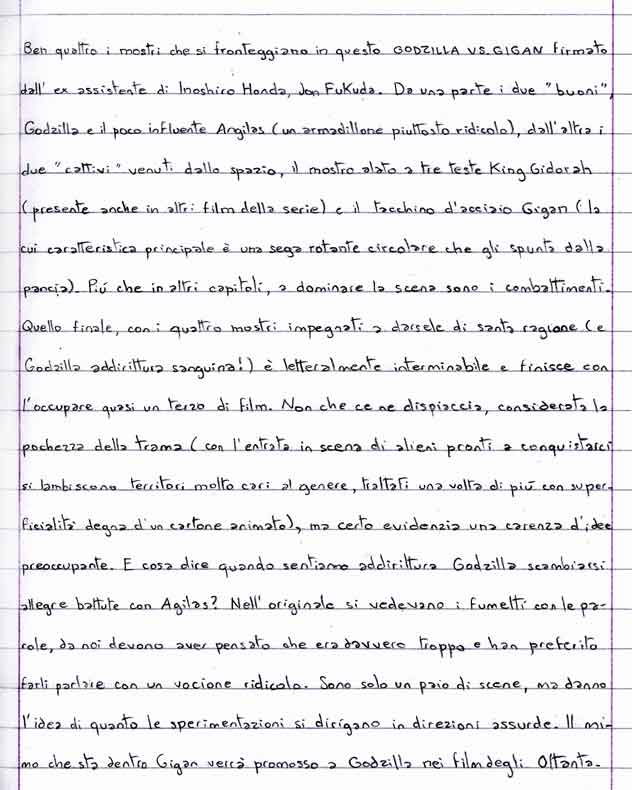 Ben quattro i mostri che si fronteggiano in questo GODZILLA VS. GIGAN firmato
dall' ex assistente di Inoshiro Honda, Jon Fukuda. Da una parte i due "buoni",
Godzilla e il poco influente Angilas (un armadillone piuttosto ridicolo), dall'altra i
due "cattivi" venuti dallo spazio, il mostro alato a tre teste King Gidorah
(presente anche in altri film della serie) e il tacchino d'acciaio Gigan (la
cui caratteristica principale è una sega rotante circolare che gli spunta dalla
pancia). Piú che in altri capitoli, a dominare la scena sono i combattimenti.
Quello finale, con i quattro mostri impegnati a darsele di santa ragione (e
Godzilla addirittura sanguina!) è letteralmente interminabile e finisce con
l'occupare quasi un terzo di film. Non che ce ne dispiaccia, considerata la
pochezza della trama (con l'entrata in scena di alieni pronti a conquistarci
si lambiscono territori molto cari al genere, trattati una volta di piú con super-
ficialità degna d'un cartone animato), ma certo evidenzia una carenza d'idee
preoccupante. E cosa dire quando sentiamo addirittura Godzilla scambiarsi
allegre battute con Agilas? Nell'originale si vedevano i fumetti con le pa-
role, da noi devono aver pensato che era davvero troppo e han preferito
farli parlare con un vocione ridicolo. Sono solo un paio di scene, ma danno
l'idea di quanto le sperimentazioni si dirigano in direzioni assurde. Il mi-
mo che sta dentro Gigan verrà promosso a Godzilla nei film degli Ottanta.